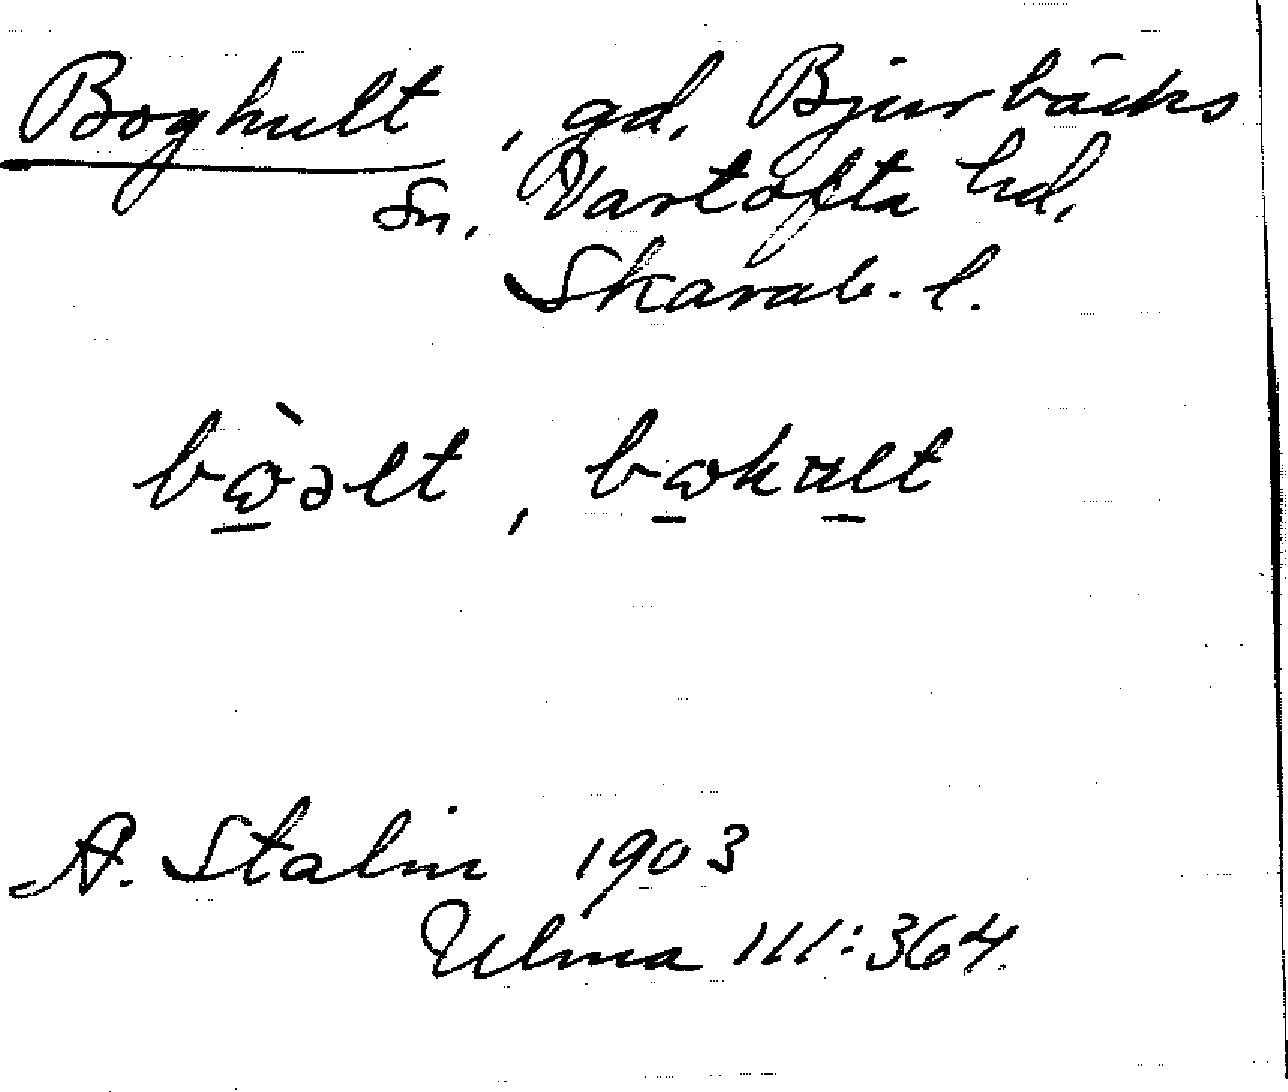 Boghult, gd, Bjurbäcks
sn, Vartofta hd,
Skarab. l.
bὼ̠əlt, bω̠ku̠lt
A. Stalin 1903
Ulma 111:364.